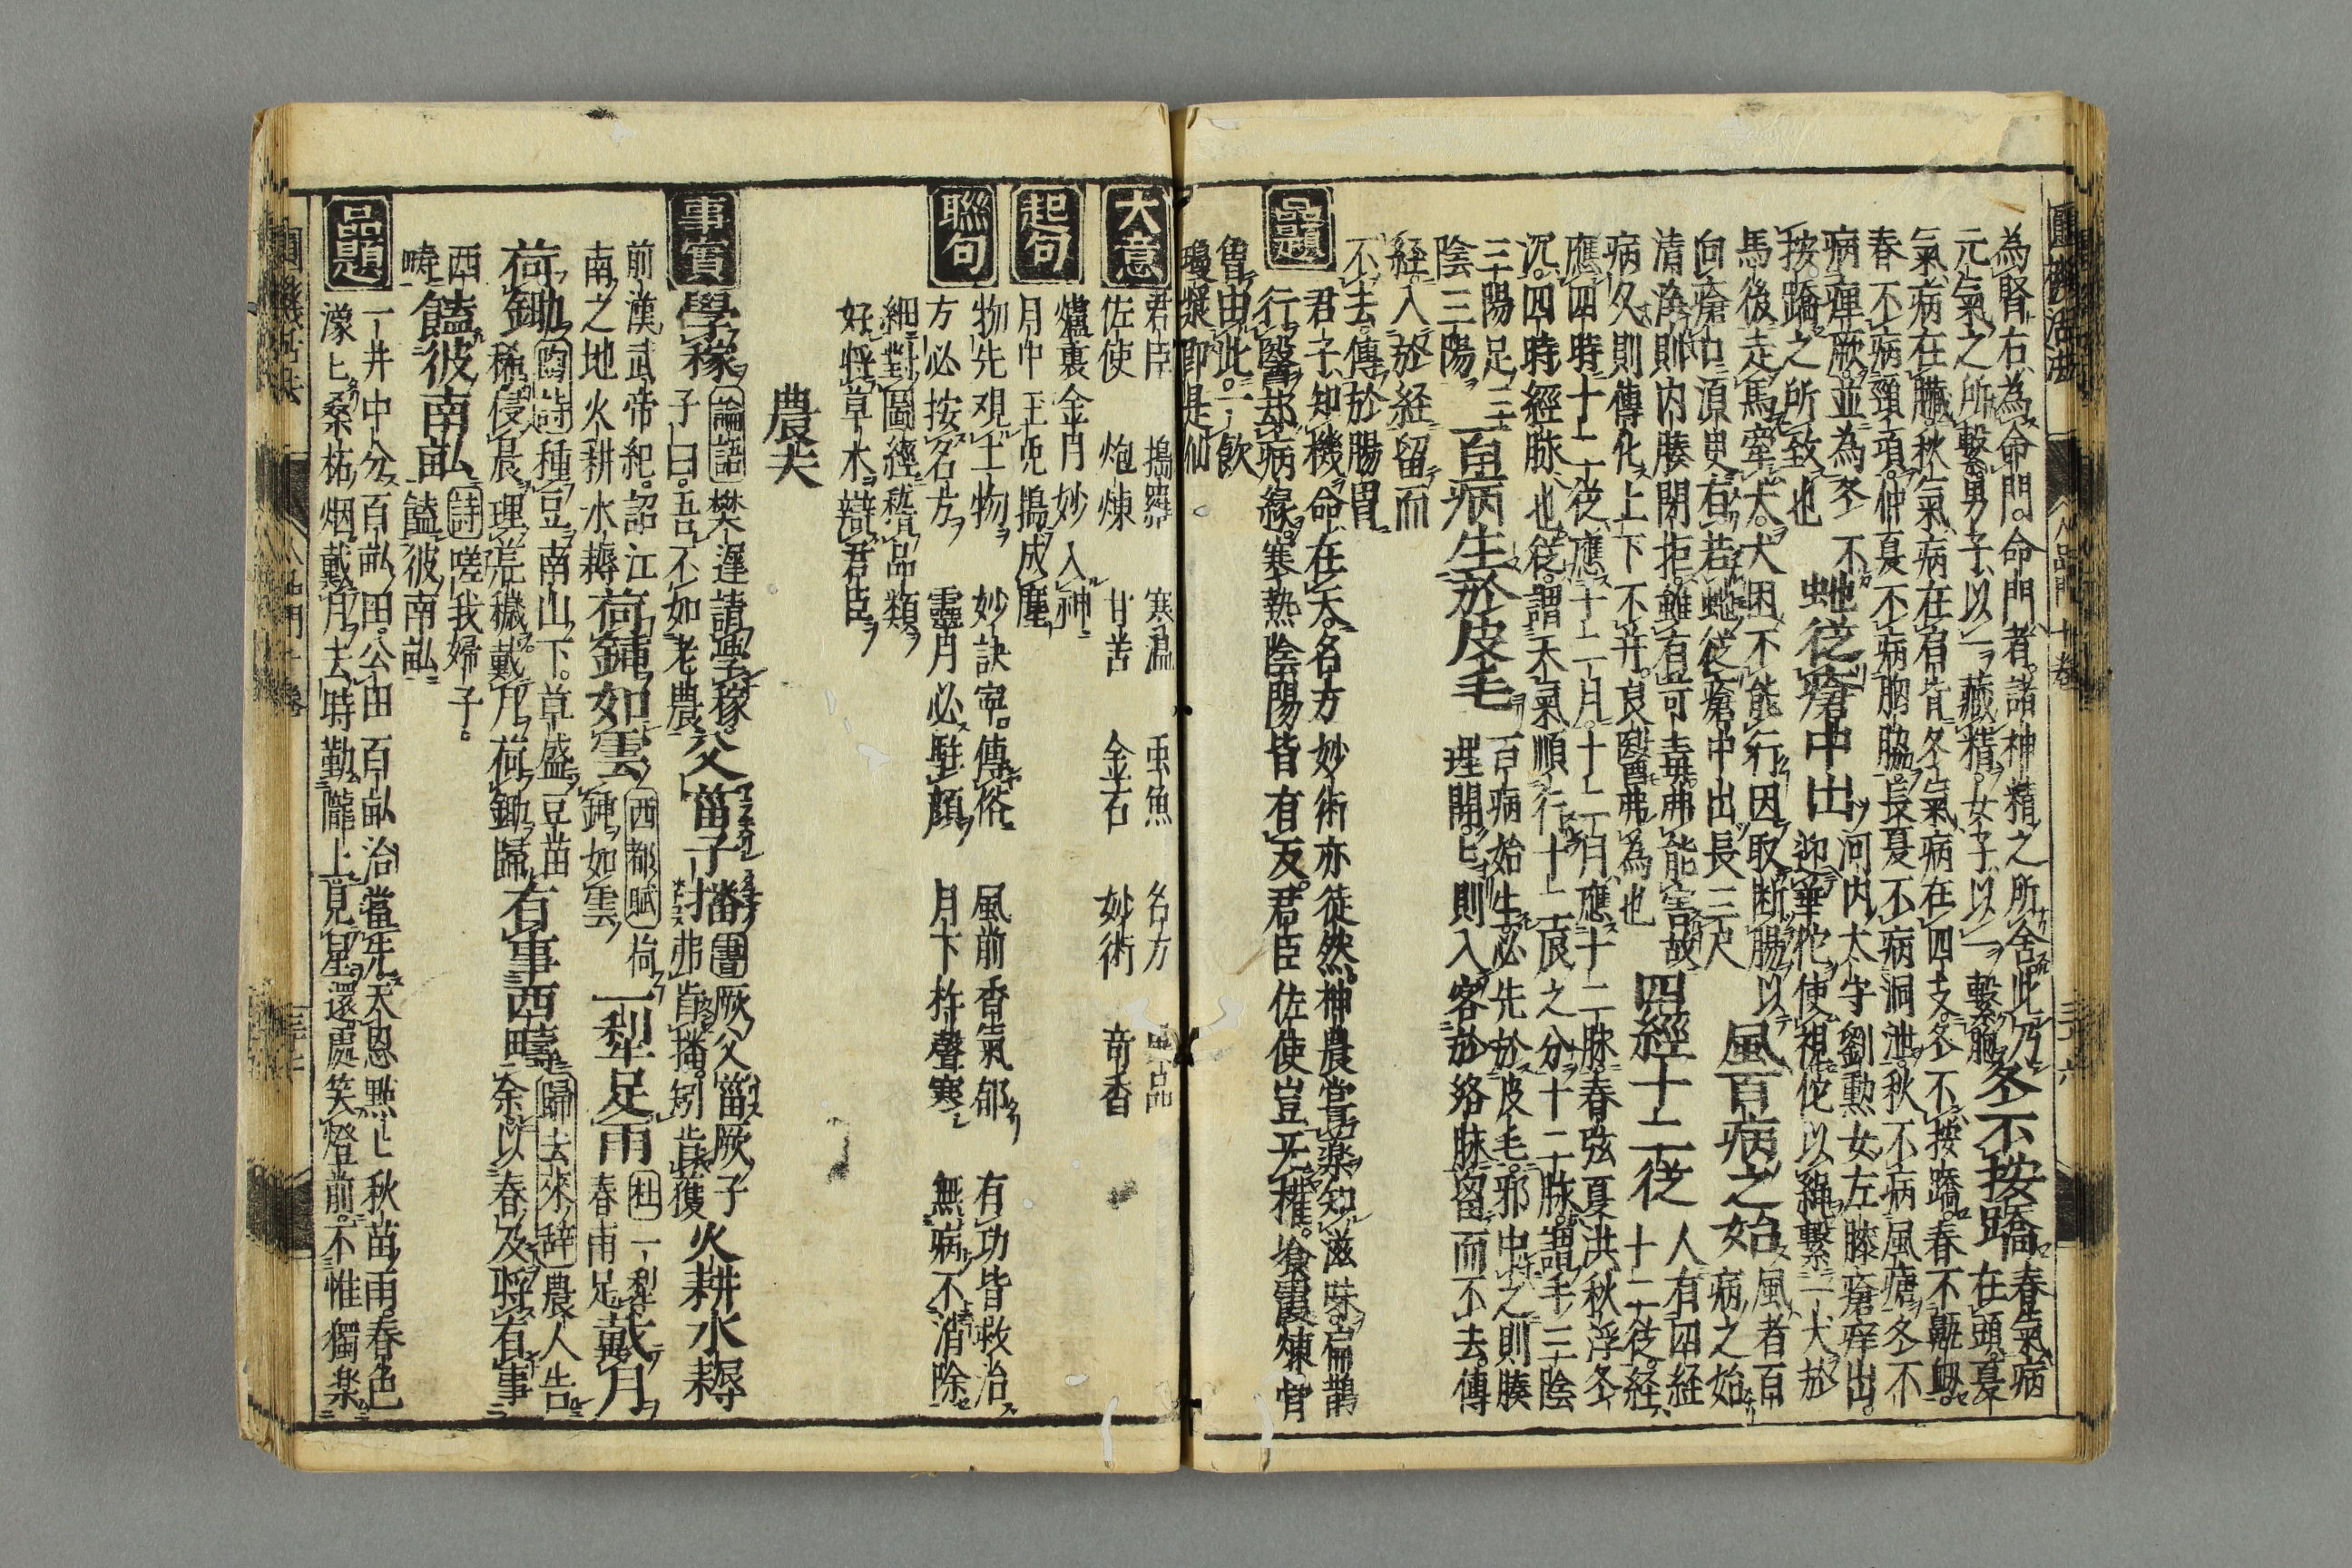 為腎右為命門命門者諸神精之所舍此乃
元氣之所繫男子以藏精女子以繫胞
冬不按蹻
春氣病
在頭夏
氣病在臟秋氣病在肩背冬氣病在四支冬不按蹻春不鼽衂
春不病頸項仲夏不病胸脇長夏不病洞泄秋不病風瘧冬不
病痺厥並為冬不
按蹻之所致也
蛇從瘡中出
河内太守劉勳女左膝瘡痒出
迎華佗使視佗以繩繫一犬於
馬後走馬牽犬犬困不能行因取断腸以
向瘡口源叟有若蛇從瘡中出長三尺
風百病之始
風者百
病之始
清淨則内腠閉拒雖有可毒弗能害故
病久則傳化上下不并良醫弗為也
四經十二從
人有四経
十二從経
應四時十二從應十二月十二月應十二脉春弦夏洪秋浮冬
沉四時經脉也從謂天氣順行十二辰之分十二脉謂手三陰
三陽足三
陰三陽
百病生於皮毛
百病始生必先於皮毛邪中之則腠
理開匕則入客於絡脉留而不去傳
経入於経留而
不去傳於腸胃
品題
君子知機命在天名方妙術亦徒然神農嘗薬知滋味扁鵲
行醫却病縁寒熱陰陽皆有反君臣佐使豈无権飡霞煉
曽由此一飲
瓊漿即是仙
大意
君臣 搗羅 寒温 虫魚 名方 品
佐使 炮煉 甘苦 金石 妙術 奇香
起句
爐裏金丹妙入神
月中玉兎搗成塵
聯句
物先观土物 妙訣寧傳俗 風前香氣郁 有功皆救治
方必按名方 靈丹必駐顔 月下杵聲寒 無病不消除
細對圖經稽品類
好将草木辯君臣
農夫
事實
學稼
論語 樊遲請學稼
子曰吾不如老農
父菑子播
書 厥父菑厥子
弗肯播矧肯獲
火耕水耨
前漢武帝紀詔江
南之地火耕水耨
荷鍤如雲
西都賦 荷
鍤如雲
一犁足雨
杜 一犁
春雨足
戴月
荷鋤
陶詩 種豆南山下草盛豆苗
稀侵晨理荒穢戴月荷鋤歸
有事西疇
歸去來辞 農人告
余以春及将有事
西
疇
饁彼南畝
詩 嗟我婦子
饁彼南畝
品題
一井中分百畝田公田百畝治當先天恩點匕秋苗雨春色
濛匕桑柘烟戴月去時勤隴上見星還處笑燈前不惟獨楽